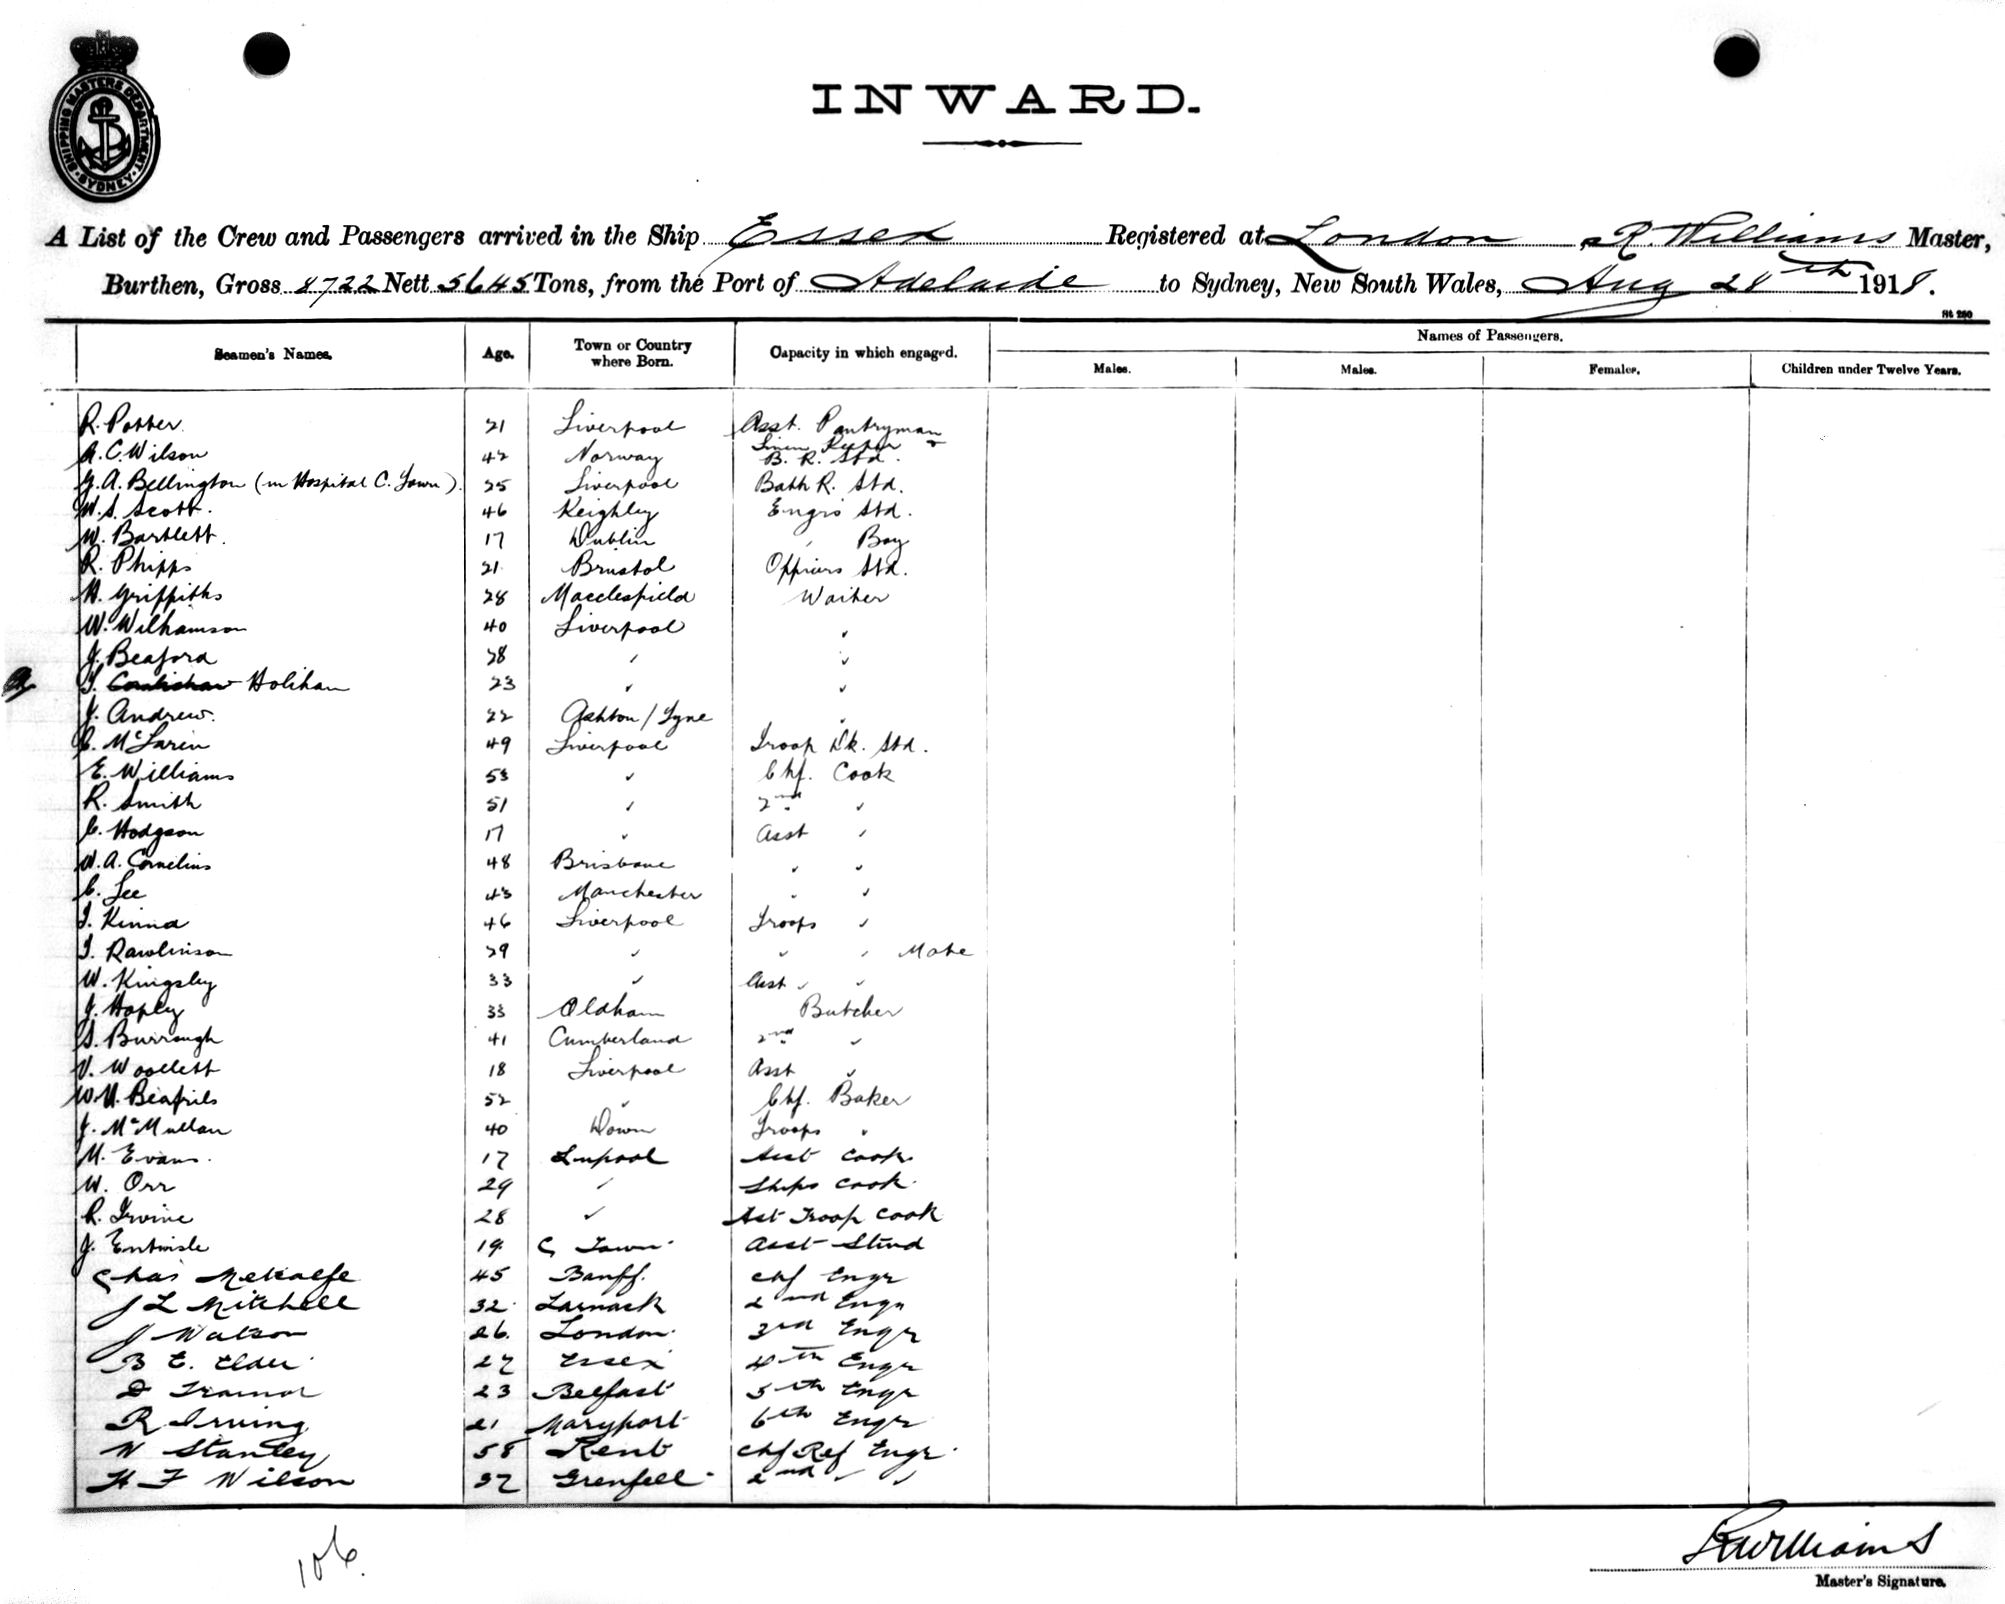 SHIPPING MASTERS DEPARTMENT
SYDNEY
INWARD.
A List of the Crew and Passengers arrived in the Ship Essex Registered at London R. Williams Master,
Burthen, Gross 8722 Nett 5645 Tons, from the Port of Adelaide to Sydney, New South Wales, Aug 28th 1918.
St 260
Seamen's Names. Age. Town or Country where Born. Capacity in which engaged. Names of Passengers.
Males. Males. Females. Children under Twelve Years.
R. Potter. 21 Liverpool Asst. Pantryman
A. C. Wilson 42 Norway Linen Keeper & B. R. Std.
G. A. Bellington (in Hospital C. Town). 25 Liverpool Bath R. Std.
W. S. Scott. 46 Keighley Engrs Std.
W. Bartlett. 17 Dublin " Boy
R. Phipps 21 Bristol Officers Std.
H. Griffiths 28 Macclesfield Waiter
W. Williamson 40 Liverpool "
J. Beaford 28 " "
T. Holihan 23 " "
J. Andrew. 22 Ashton / Lyne "
C. McLaren 49 Liverpool Troop Dk. Std.
E. Williams 53 " Chf. Cook
R. Smith 51 " 2nd "
C. Hodgson 17 " Asst "
W. A. Cornelius 48 Brisbane " "
C. Lee 43 Manchester " "
T. Kinna 46 Liverpool Troops "
T. Rawlinson 29 " " " Mate
W. Kingsley 33 " Asst " "
J. Hopley 33 Oldham Butcher
S. Burrough 41 Cumberland 2nd "
V. Woollett 18 Liverpool Asst "
W. H. 52 " Chf. Baker
J. McMullan 40 Down Troops "
M. Evans. 17 L'upool Asst Cook
W. Orr 29 " Ships Cook
R. Irvine 28 " Ast Troop Cook
J. Entwisle 19 C Town Asst Stwd
Chas Metcalfe 45 Banff. Chf Engr
J L Mitchell 32 Larnark 2nd Engr
J Watson 26 London 3rd Engr
B E. Elder 27 Essex 4th Engr
D Trainor 23 Belfast 5th Engr
R Irving 21 Maryport 6th Engr
W Stanley 58 Kent Chf Ref Engr
H F Wilson 37 Grenfell 2nd " "
106.
R Williams
Master's Signature.